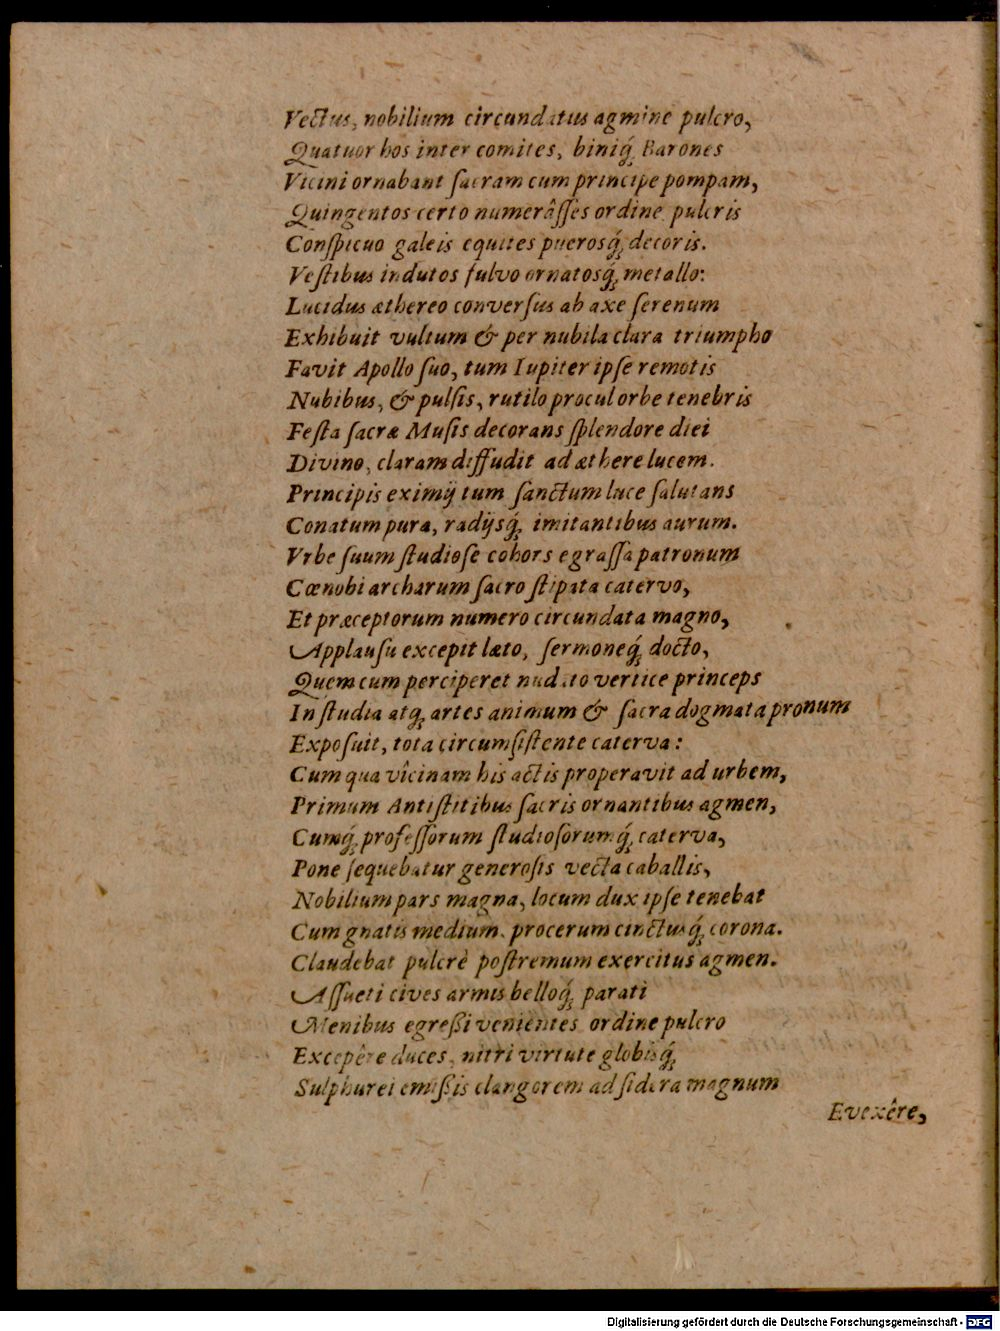 Vectus, nobilium circundatus agmine pulcro,
Quatuor hos inter comites, biniq́; Barones
Vicini ornabant ſacram cum principe pompam,
Quingentos certo numerâſſes ordine pulcris
Conſpicuo galeis equites puerosq́; decoris.
Veſtibus indutos fulvo ornatosq́; metallo:
Lucidus æthereo converſus ab axe ſerenum
Exhibuit vultum & per nubila clara triumpho
Favit Apollo ſuo, tum Iupiter ipſe remotis
Nubibus, & pulſis, rutilo procul orbe tenebris
Feſta ſacræ Muſis decorans ſplendore diei
Divino, claram diffudit ad æthere lucem.
Principis eximij tum ſanctum luce ſalutans
Conatum pura, radijsq́; imitantibus aurum.
Vrbe ſuum ſtudioſe cohors egraſſa patronum
Cœnobiarcharum ſacro ſtipata catervo,
Et præceptorum numero circundata magno,
Applauſu excepit læto, ſermoneq́; docto,
Quem cum perciperet nudato vertice princeps
In ſtudia atq; artes animum & ſacra dogmata pronum
Expoſuit, tota circumſiſtente caterva:
Cum qua vicinam his actis properavit ad urbem,
Primum Antiſtitibus ſacris ornantibus agmen,
Cumq́; profeſſorum ſtudioſorumq́; caterva,
Pone ſequebatur generoſis vecta caballis,
Nobilium pars magna, locum dux ipſe tenebat
Cum gnatis medium, procerum cinctusq́; corona.
Claudebat pulcrè poſtremum exercitus agmen.
Aſſueti cives armis belloq́; parati
Menibus egreßi venientes ordine pulcro
Excepêre duces, nitri virtute globisq́;
Sulphurei emißis clangorem ad ſidera magnum
Evexêre,
Digitalisierung gefördert durch die Deutsche Forschungsgemeinschaft - DFG